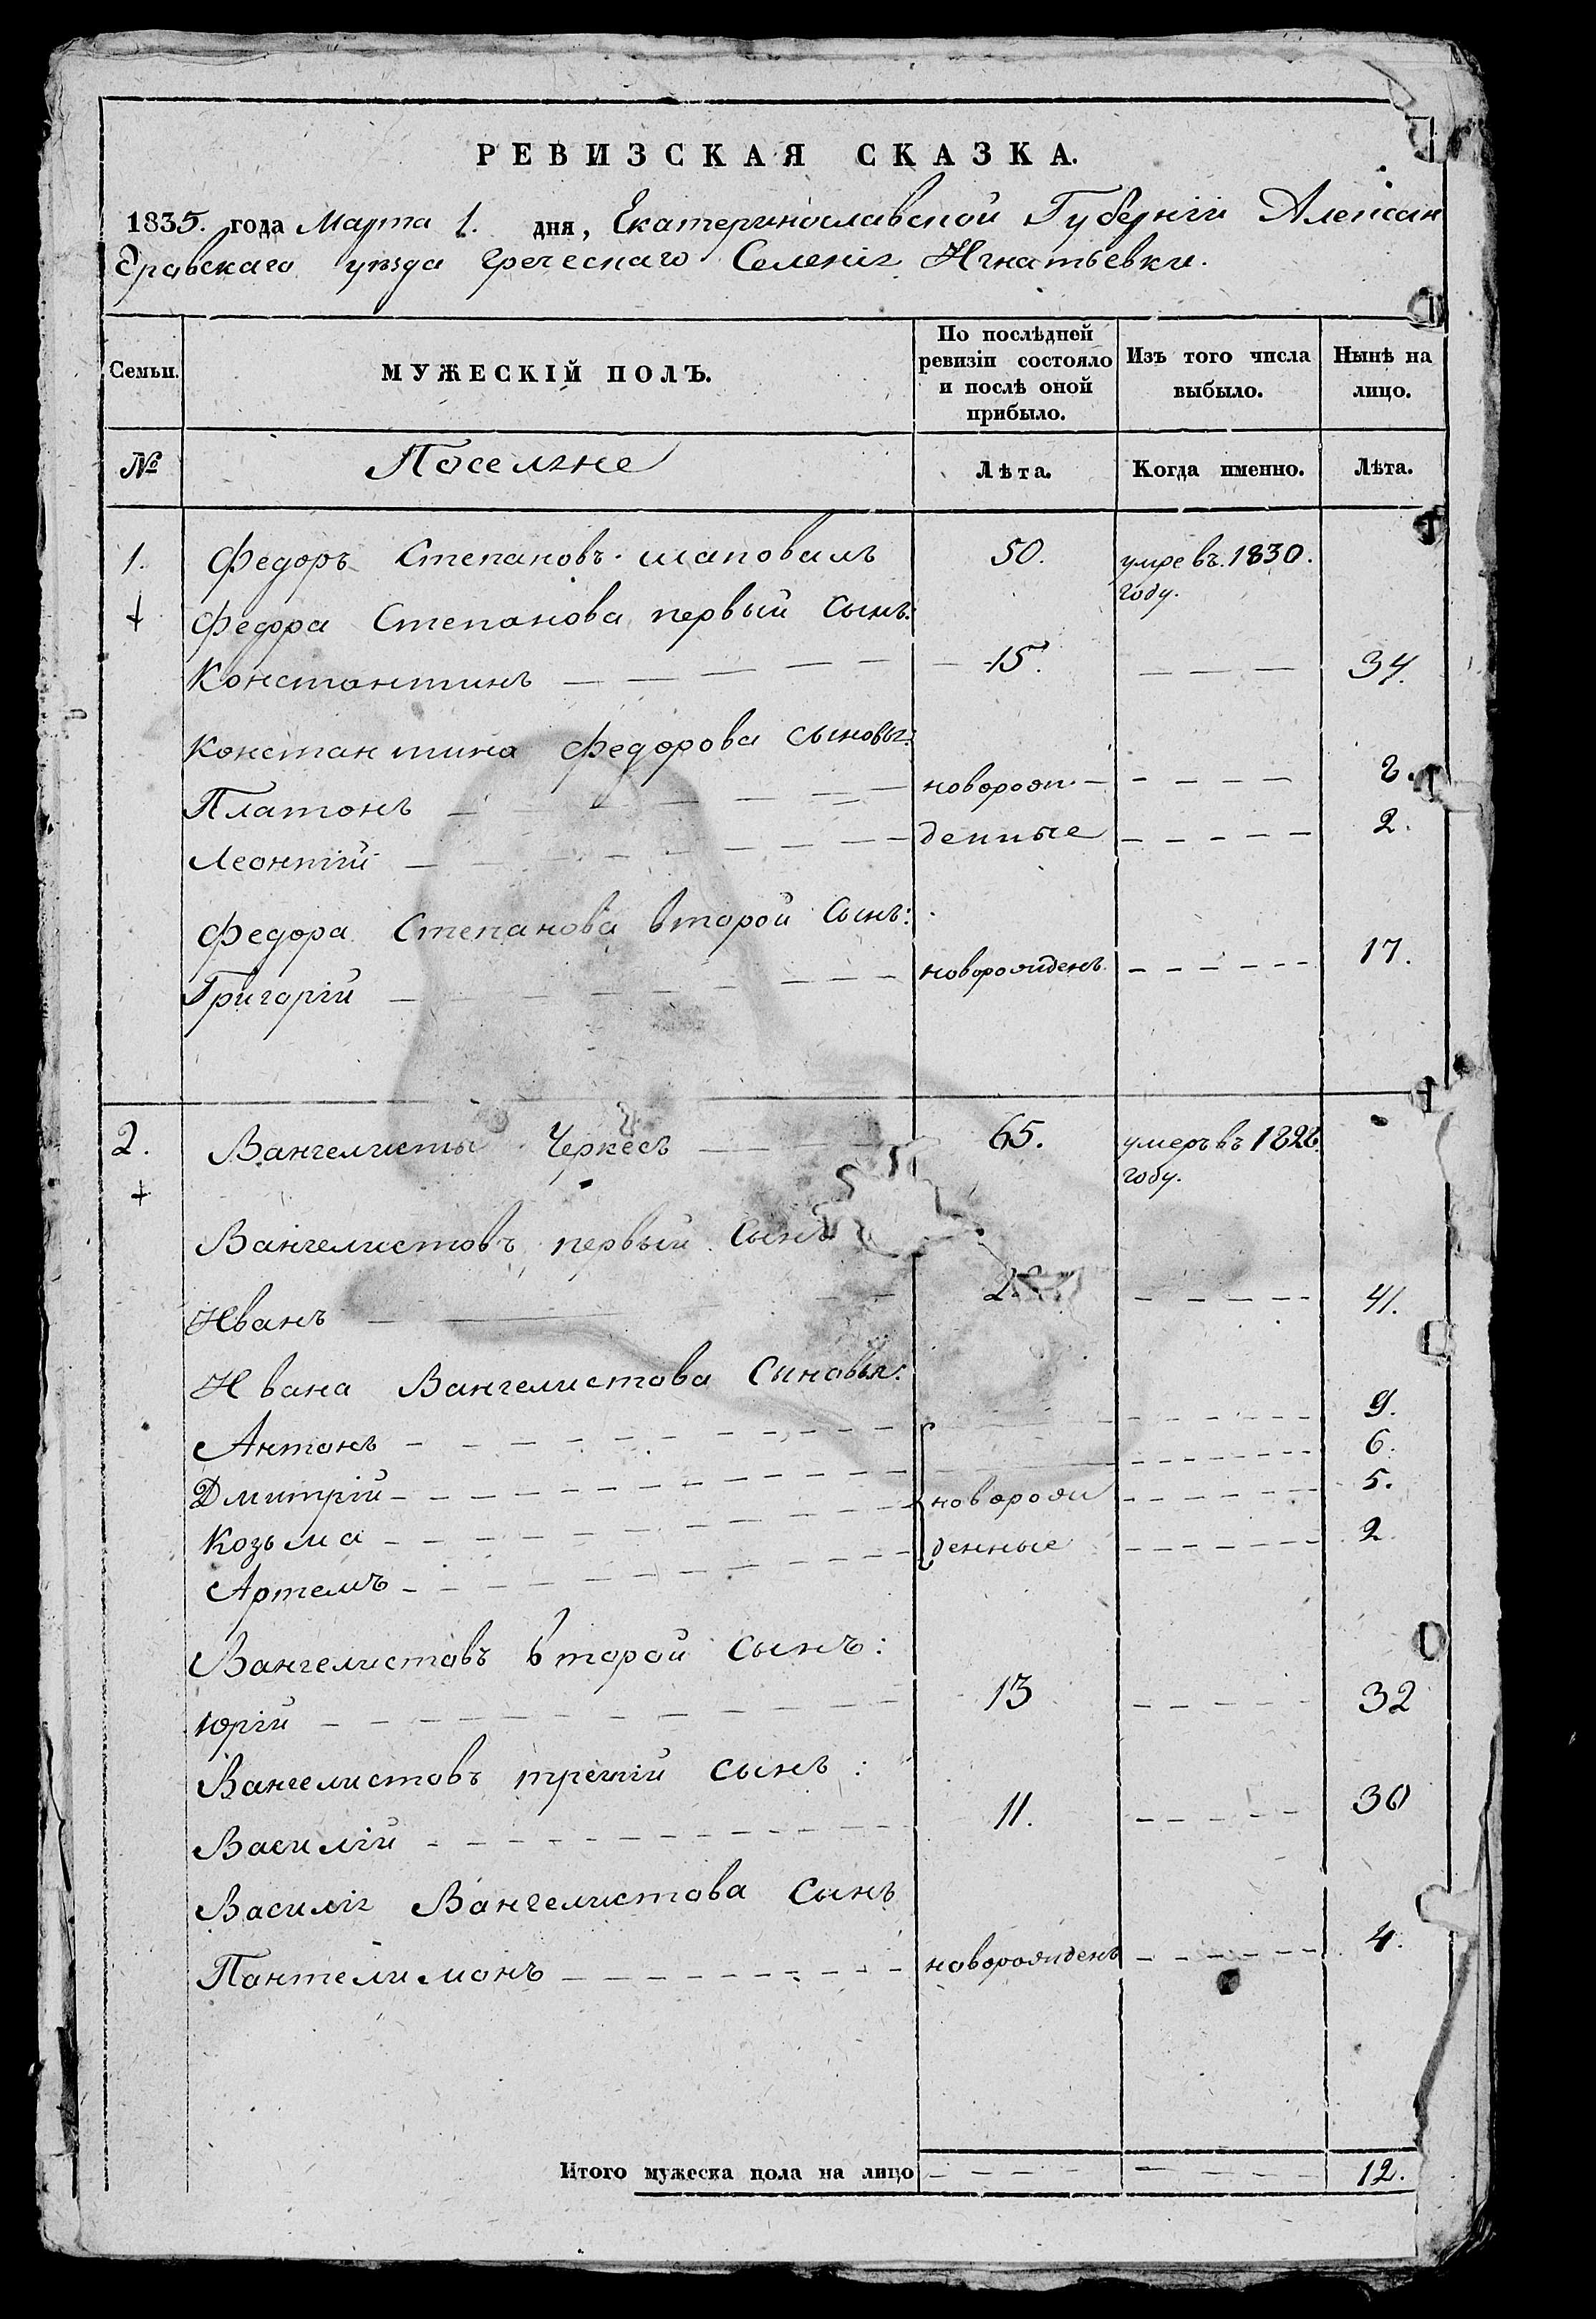 РЕВИЗСКАЯ СКАЗКА.
1835. года Марта 1. дня, Екатеринославской Губерніи Алексан
дровскаго уѣзда греческаго Селенія Игнатьевки.
Семьи. МУЖЕСКІЙ ПОЛЪ. По послѣдней ревизіи состояло и послѣ оной прибыло. Изъ того числа выбыло. Нынѣ на лицо.
№ Поселяне Лѣта. Когда именно. Лѣта.
1. Федоръ Степановъ шаповалъ 50. умре въ. 1830.
году.
Федора Степанова первый Сынъ:
Константинъ 15. 34.
Константина Федорова Сыновья:
Платонъ новорож 2.
Леонтій денные 2.
Федора Степанова второй Сынъ:
Григорій новорожденъ 17.
2. Вангелисты Черкесъ 65. умеръ въ
году.
Вангелистовъ первый Сынъ
Иванъ 41.
Ивана Вангелистова Сыновья:
Антонъ 9.
Дмитрій 6.
Козьма новорож 5.
Артемъ денные 2
Вангелистовъ второй сынъ:
Юрій 13 32
Вангелистовъ третій сынъ:
Василій 11. 30
Василія Вангелистова Сынъ
Пантелимонъ новорожденъ 4.
Итого мужеска пола на лицо 12.